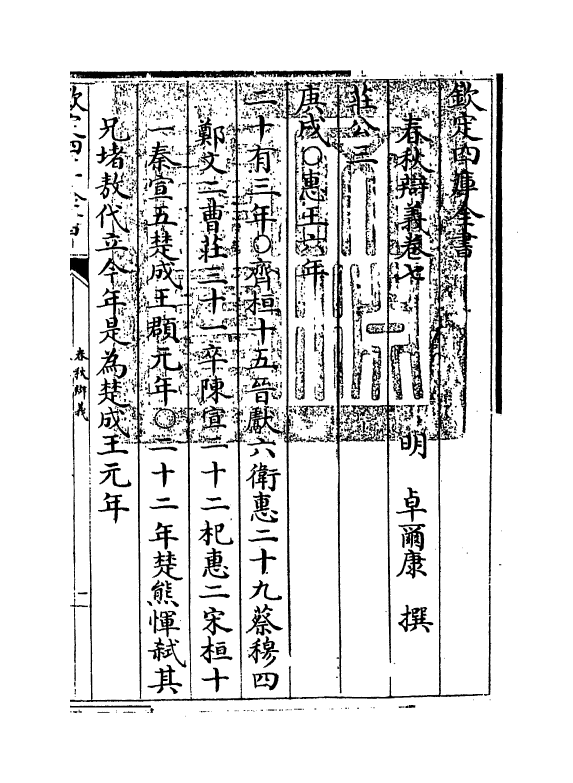 欽定四庫全書
春秋辯義卷七
明 卓爾康 撰
莊公三
庚戌○惠王六年
二十有三年○齊桓十五晉獻六衛惠二十九蔡穆四
鄭文二曹莊三十一卒陳宣二十二杞惠二宋桓十
一秦宣五楚成王頵元年○二十二年楚熊惲弑其
兄堵敖代立今年是為楚成王元年
春秋辯義